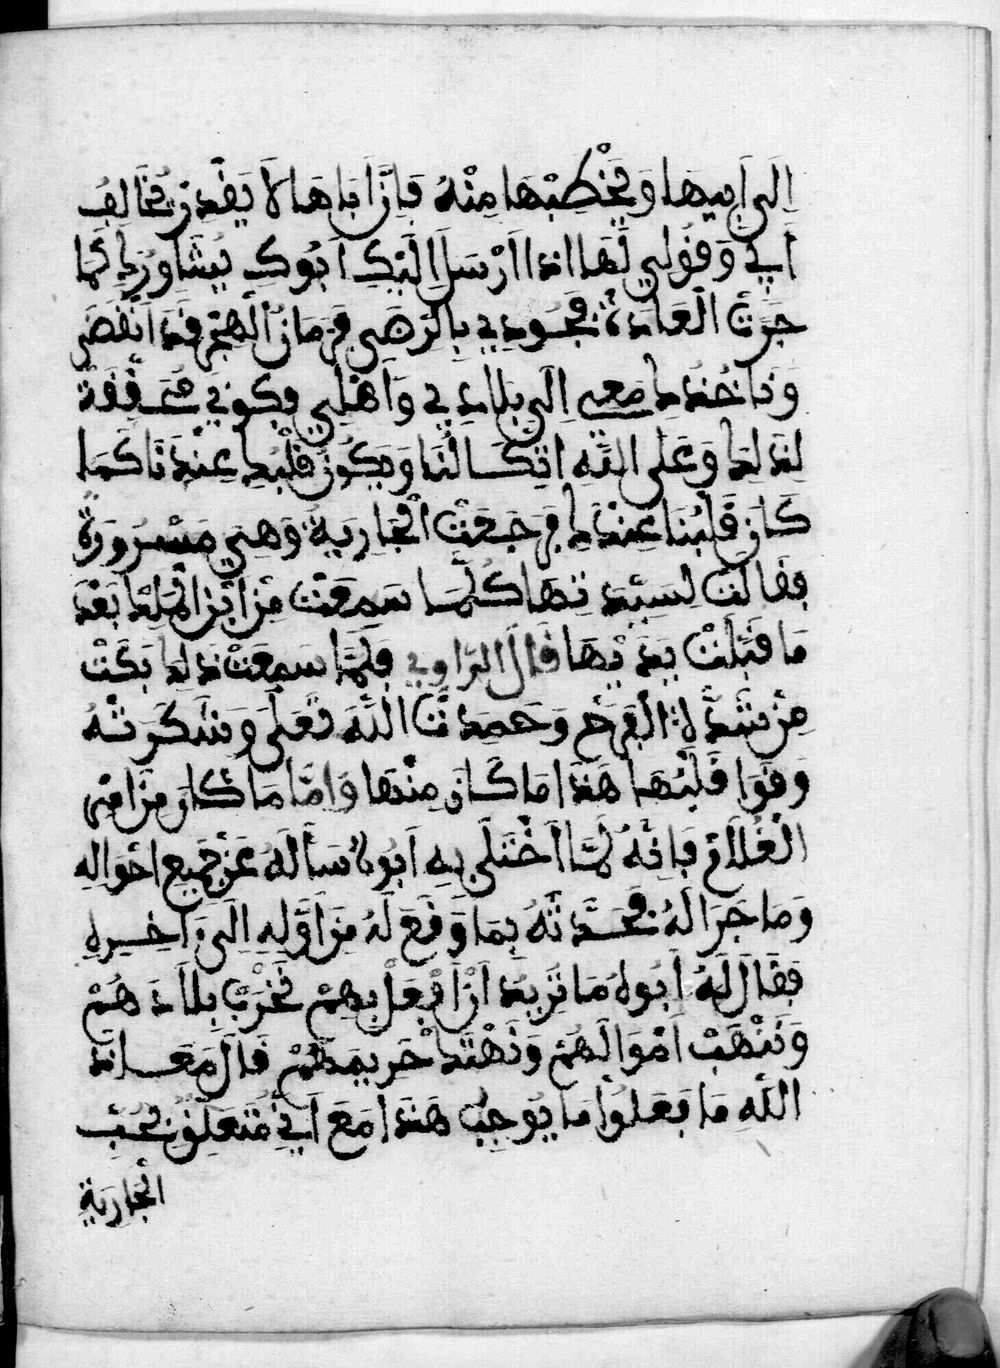 اِلَى اَبِيهَا وَيَخْطِبْهَا مِنْهُ فَاِنَّ اَبَاهَا لَا يَقْدِرْ يُخَالِفُ
اَبِي وَقُولِي لَهَا اذا اَرْسَلَ اِلَيْكِ اَبُوكِ يُشَاوُرِك كما
جَرَتْ الْعَادَةُ فَجُودِي بِالرضى فزمان الْهَجْرِ قَدِ اَنْقَضَى
وَنَاخُذك معى اِلَى بِلَادِي وَاَهْلِي فكوني شفقة
لذلك وَعَلى اللَّه اتِّكَالُنَا وَيَكُونُ قَلْبُك عِنْدَنَا كَمَا
كَانَ قَلْبُنَا عِنْدَك فرجَعَتْ الْجَارِيَةُ وَهِيَ مَسْرُورَةٌ
فقالت لسيدتها كلما سَمِعَتْ مِنْ اَبْنِ الملك بَعْدَ
مَا قَبَّلَتْ يَدَيْهَا قَالَ الرَّاوِي فلمَّا سَمِعَتْ ذلك بَكَتْ
مِنْ شَدَّةِ الْفَرَحِ وَحمدَتِ اللَّهَ تَعَلَى وَشَكَرَتْهُ
وَقَوَا قَلْبُهَا هَذَا مَا كَانَ مِنْهَا وَامَّا مَا كَانَ مِنَ امْرِ
الْغُلَامِ فَاِنَّهُ لَمَّا اَخْتَلَى بِهِ اَبُوهُ سَأَلَهُ عَنْ جَمِيعِ احْوَالِهِ
وَمَا جَرَا لَهُ فَحَدَّثَهُ بِمَا وَقَعَ لَهُ مِنَ اَوَّلِهِ اِلَى ءَاخِرِهِ
فقَالَ لَهُ اَبُوهُ مَا تُرِيدُ اَنْ اَفْعَلْ بِهِمْ نُخَرِّبْ بِلَادَهُمْ
وَنَنْهَبْ اَمْوَالَهُمْ وَنَهْتَك حَرِيمَهُمْ قَالَ مَعَاذ
اللَّهِ مَا فَعَلُوا مَا يُوجِبُ هَذَا مَعَ اَنِّي مُتَعَلِّقٌ بِحُبِّ
الْجَارِيَةِ